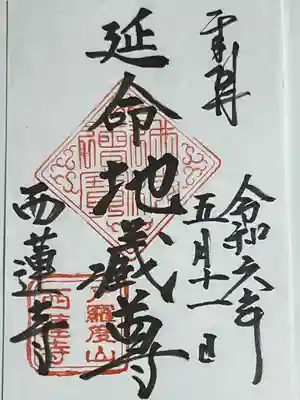 奉拝
令和六年
五月十一日
延命地蔵尊
西蓮寺
佛法僧寳
羅度山
西蓮寺